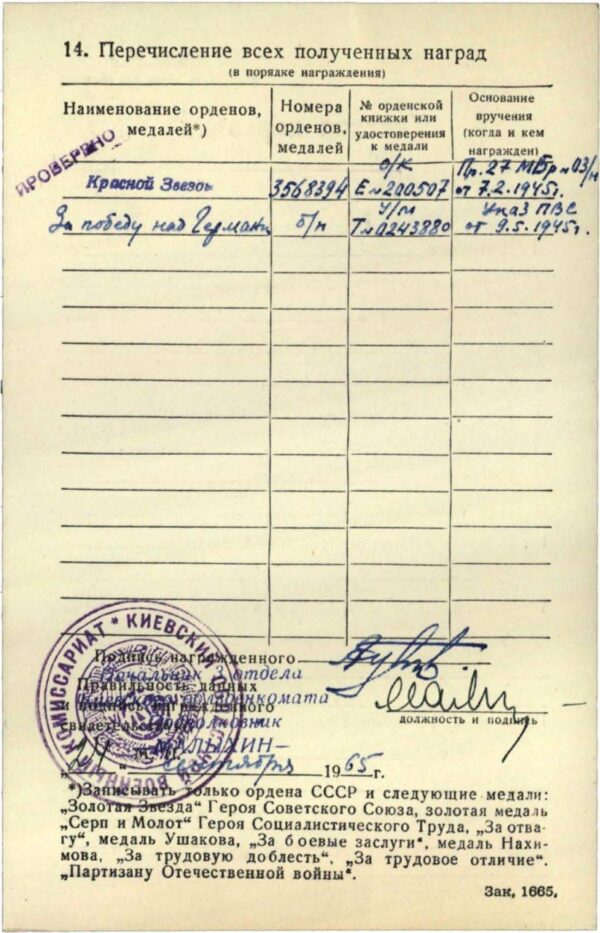 14. Перечисление всех полученных наград
(в порядке награждения)
Наименование орденов, медалей*)
Номера орденов, медалей
№ орденской книжки или удостоверения к медали
Основание вручения (когда и кем награжден)
ПРОВЕРЕНО
Красной Звезды 3568394 о/к Е №200507 Пр. 27 МБр №03/н от 7.2.1945г.
За победу над Германи б/н у/м Т №0243880 Указ ПВС от 9.5.1945г.
ВОЕННЫЙ КОМИССАРИАТ * КИЕВСКИЙ
Подпись награжденного
Начальник 3 отдела
Правильность данных
и подпись награжденного
Подполковник
МАЛЫХИН-
должность и подпись
„24" сентября 1965г.
*)Записывать только ордена СССР и следующие медали:
„Золотая Звезда" Героя Советского Союза, золотая медаль
„Серп и Молот" Героя Социалистического Труда, „За отва-
гу", медаль Ушакова, „За боевые заслуги", медаль Нахи-
мова, „За трудовую доблесть", „За трудовое отличие".
„Партизану Отечественной войны".
Зак, 1665,